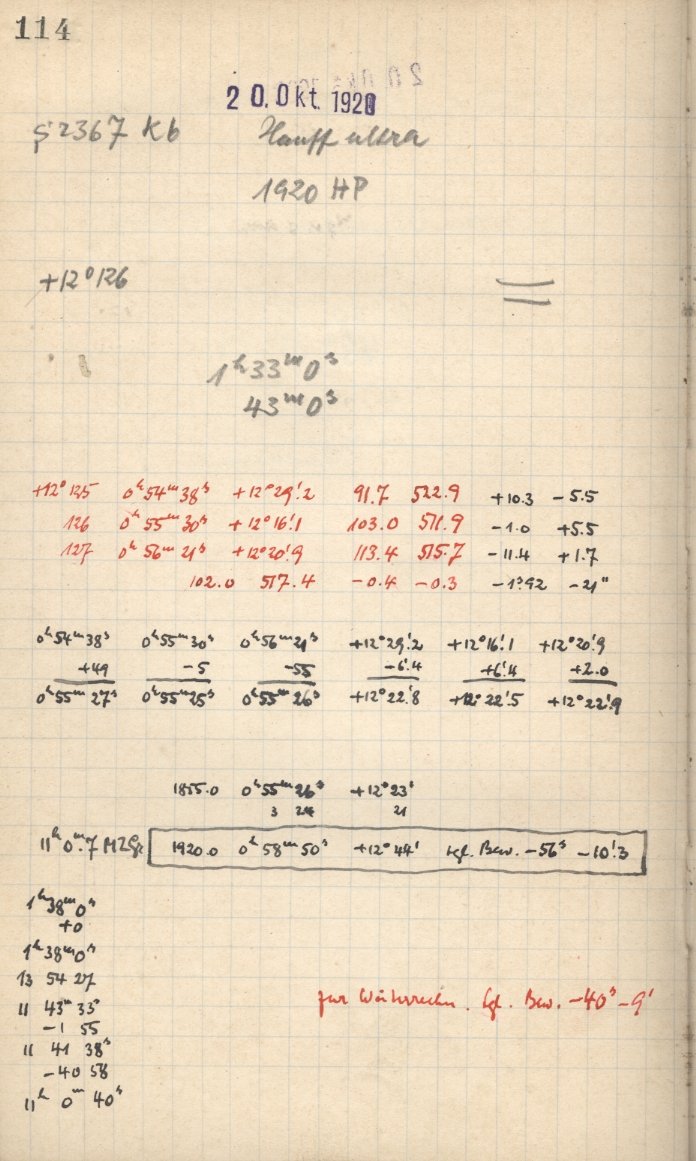 114
20. Okt. 1920
2367 Kb Hauff ultra
1920 HP
+12° 126
1ʰ33ᵐ0ˢ
43ᵐ0ˢ
+12° 125 0ʰ54ᵐ38ˢ +12°29'.2 91.7 522.9 +10.3 -5.5
126 0ʰ55ᵐ30ˢ +12°16'.1 103.0 511.9 -1.0 +5.5
127 0ʰ56ᵐ21ˢ +12°20'.9 113.4 515.7 -11.4 +1.7
102.0 517.4 -0.4 -0.3 -1ˢ.92 -21"
0ʰ54ᵐ38ˢ 0ʰ55ᵐ30ˢ 0ʰ56ᵐ21ˢ +12°29'.2 +12°16'.1 +12°20'.9
+49 -5 -55 -6'.4 +6'.4 +2.0
0ʰ55ᵐ27ˢ 0ʰ55ᵐ25ˢ 0ʰ55ᵐ26ˢ +12°22'.8 +12°22'.5 +12°22'.9
1855.0 0ʰ55ᵐ26ˢ +12°23'
3 24 21
11ʰ0ᵐ.7 MZGr 1920.0 0ʰ58ᵐ50ˢ +12°44' tgl. Bew. -56ˢ -10'.3
1ʰ38ᵐ0ˢ
+0
1ʰ38ᵐ0ˢ
13 54 27
11 43ᵐ33ˢ
-1 55
11 41 38ˢ
-40 58
11ʰ 0ᵐ 40ˢ
zur tgl. Bew. -40ˢ -9'